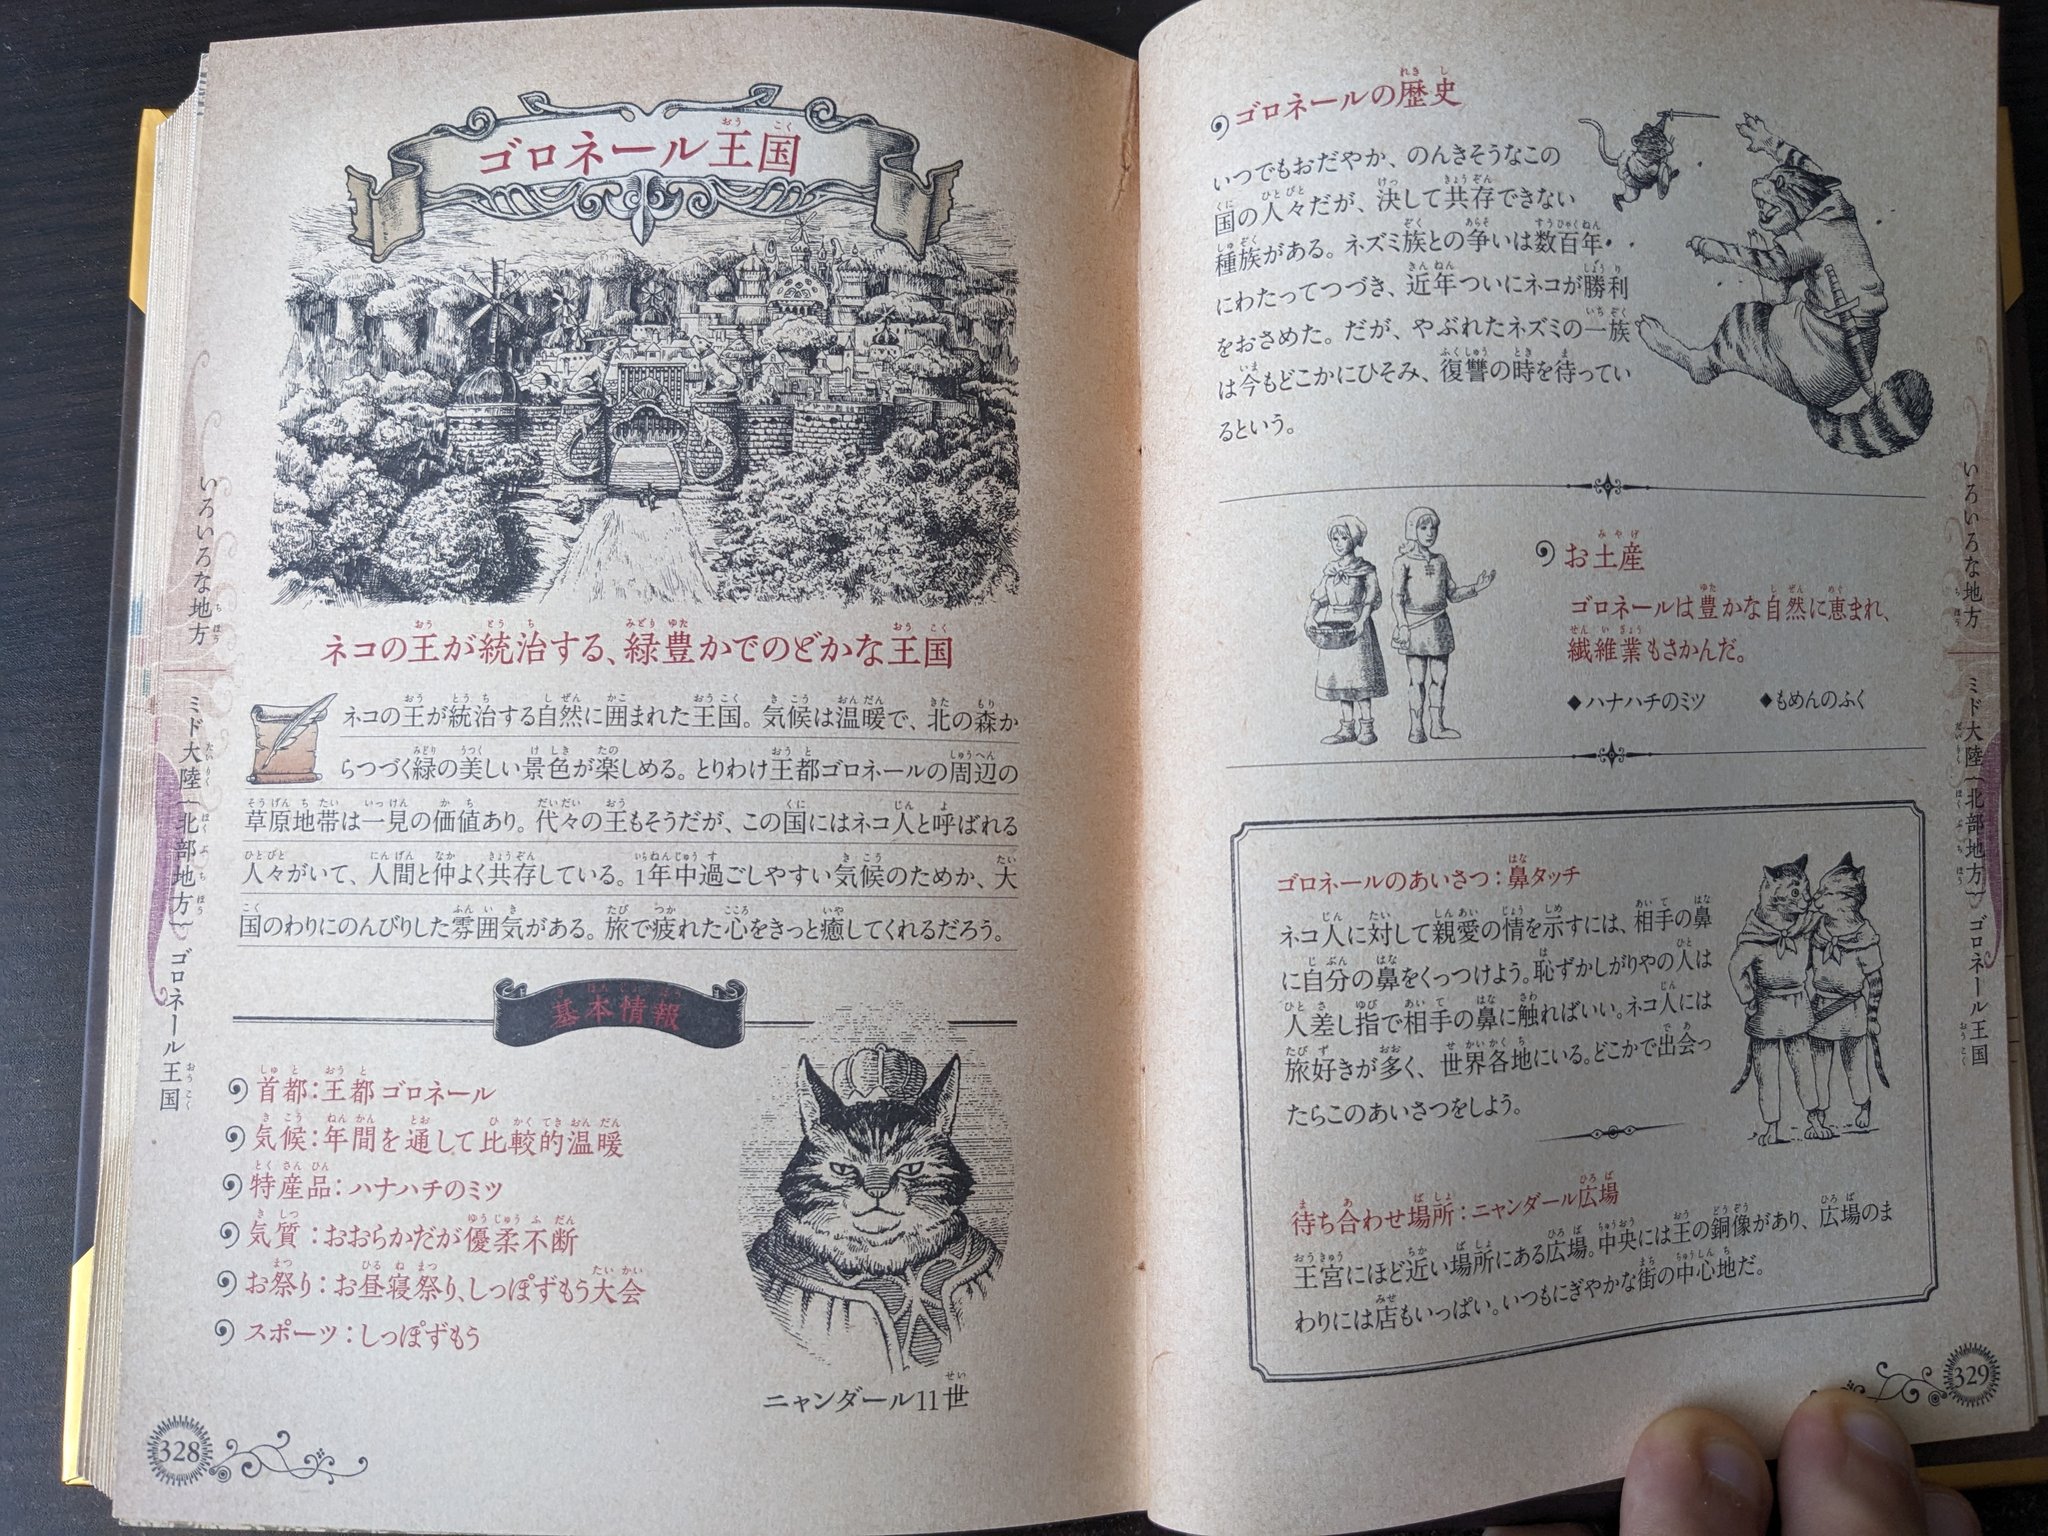 ゴロネール王国
ネコの王が統治する、緑豊かでのどかな王国
ネコの王が統治する自然に囲まれた王国。気候は温暖で、北の森か
らつづく緑の美しい景色が楽しめる。とりわけ王都ゴロネールの周辺の
草原地帯は一見の価値あり。代々の王もそうだが、この国にはネコ人と呼ばれる
人々がいて、人間と仲よく共存している。1年中過ごしやすい気候のためか、大
国のわりにのんびりした雰囲気がある。旅で疲れた心をきっと癒してくれるだろう。
基本情報
首都：王都ゴロネール
気候：年間を通して比較的温暖
特産品：ハナハチのミツ
気質：おおらかだが優柔不断
お祭り：お昼寝祭り、しっぽずもう大会
スポーツ：しっぽずもう
ニャンダール11世
いろいろな地方 ミド大陸［北部地方］ ゴロネール王国
328
ゴロネールの歴史
いつでもおだやか、のんきそうなこの
国の人々だが、決して共存できない
種族がある。ネズミ族との争いは数百年
にわたってつづき、近年ついにネコが勝利
をおさめた。だが、やぶれたネズミの一族
は今もどこかにひそみ、復讐の時を待ってい
るという。
お土産
ゴロネールは豊かな自然に恵まれ、
繊維業もさかんだ。
◆ハナハチのミツ ◆もめんのふく
ゴロネールのあいさつ：鼻タッチ
ネコ人に対して親愛の情を示すには、相手の鼻
に自分の鼻をくっつけよう。恥ずかしがりやの人は
人差し指で相手の鼻に触ればいい。ネコ人には
旅好きが多く、世界各地にいる。どこかで出会っ
たらこのあいさつをしよう。
待ち合わせ場所：ニャンダール広場
王宮にほど近い場所にある広場。中央には王の銅像があり、広場のま
わりには店もいっぱい。いつもにぎやかな街の中心地だ。
いろいろな地方 ミド大陸［北部地方］ ゴロネール王国
329